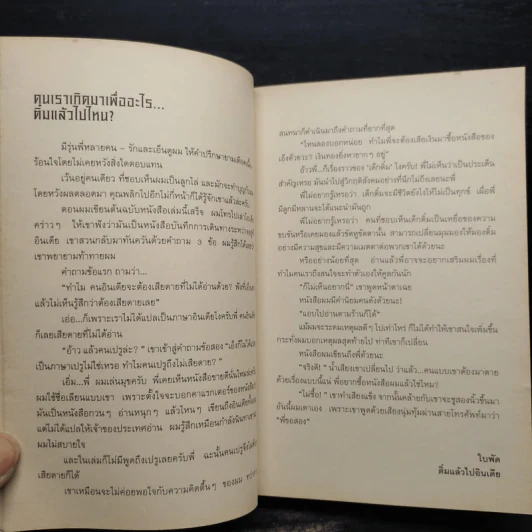 คนเราเกิดมาเพื่ออะไร...
ดื่มแล้วไปไหน?
มีรุ่นพี่หลายคน – รักและเอ็นดูผม ให้คำปรึกษายามเดือด
ร้อนใจโดยไม่เคยหวังสิ่งใดตอบแทน
เว้นอยู่คนเดียว ที่ชอบเห็นผมเป็นลูกไล่ และมักจะทำบุญกับผม
โดยหวังผลตลอดมา คุณพลิกไปอีกกี่หน้าก็ได้รู้จักเขาแล้วล่ะครับ
ตอนผมเขียนต้นฉบับหนังสือเล่มนี้เสร็จ ผมโทรไปเล่าให้
คร่าวๆ ให้เขาฟังว่าเป็นหนังสือบันทึกการเดินทางระหว่าง
อินเดีย เขาสวนกลับมาทันควันด้วยคำถาม 3 ข้อ ผมรู้สึกได้
เขาพยายามท้าทายผม
คำถามข้อแรก ถามว่า...
“ทำไม คนอินเดียจะต้องเสียดายที่ไม่ได้อ่านด้วย?
แล้วไม่เห็นรู้สึกว่าต้องเสียดายเลย”
เอ่อ...ก็เพราะเราไม่ได้แปลเป็นภาษาอินเดียไงครับพี่ คนอินเดีย
ก็เลยเสียดายที่ไม่ได้อ่าน
“อ้าว แล้วคนเปรูล่ะ? ” เขาเข้าสู่คำถามข้อสอง “เอ็งก็ไม่ได้
เป็นภาษาเปรูไม่ใช่เหรอ ทำไมคนเปรูถึงไม่เสียดาย? ”
เอิ่ม...พี่ ผมเล่นมุขครับ พี่เคยเห็นหนังสือขายดี
ผมใช้ชื่อเลียนแบบเขา เพราะตั้งใจจะบอกคาแรกเตอร์ของหนังสือ
มันเป็นหนังสือกวนๆ อ่านหนุกๆ แล้วไหนๆ เขียนถึงอินเดีย
แต่ไม่ได้แปลให้เจ้าของประเทศอ่าน ผมรู้สึกเหมือนกำลังนินทา
ผมไม่สบายใจ
และในเล่มก็ไม่มีพูดถึงเปรูเลยครับพี่ ฉะนั้นคนเปรู
เสียดายก็ได้
เขาเหมือนจะไม่ค่อยพอใจกับความคิดตื้นๆ ของผม
สนทนาก็ดำเนินมาถึงคำถามที่ยากที่สุด
“ไหนลองบอกหน่อย ทำไมพี่จะต้องเสียเงินมาซื้อหนังสือของ
เอ็งด้วยวะ? เงินทองยิ่งหายากๆ อยู่”
อ้าวพี่...ก็เรื่องราวของ ‘เด็กดื่ม’ ไงครับ! พี่ไม่เห็นว่าเป็นประเด็น
สำคัญเหรอ มันนำไปสู่วิกฤติสังคมอย่างที่นึกไม่ถึงเลยนะพี่
พี่ไม่อยากรู้เหรอว่า เด็กดื่มจะมีชีวิตยังไงให้ไม่เป็นทุกข์ เมื่อพี่
มีลูกมีหลานจะได้แนะนำมันถูก
พี่ไม่อยากรู้เหรอว่า คนที่ชอบเห็นเด็กดื่มเป็นเหยื่อของความ
ขบขันหรือเคยมองแล้วขัดหูขัดตานั้น สามารถเปลี่ยนมุมมองให้มองดื่ม
อย่างมีความสุขและมีความเมตตาต่อพวกเขาได้ด้วยนะ
หรืออย่างน้อยที่สุด อ่านแล้วพี่อาจจะอยากเสริมผมเรื่องที่
ทำไมคนเราถึงสนใจจะทำตัวเองให้ดูสนกันนัก
“ก็ไม่เห็นอยากนี่” เขาพูดหน้าตาเฉย
หนังสือผมมีคำนิยมคนดังด้วยนะ!
“แอบไปอ่านตามร้านก็ได้”
แม้ผมจะระดมเหตุผลดีๆ ไปเท่าไหร่ ก็ไม่ได้ทำให้เขาสนใจเพิ่มขึ้น
กระทั่งผมบอกเหตุผลสุดท้ายไป ท่าทีเขาก็เปลี่ยน
หนังสือผมเขียนถึงพี่ด้วยนะ
“จริงดิ! ” น้ำเสียงเขาเปลี่ยนไป ว่าแล้ว...คนแบบเขาต้องมาตาย
ด้วยเรื่องแบบนี้แน่ พี่อยากซื้อหนังสือผมแล้วใช่ไหม!
“ไม่ซื้อ! ” เขาทำเสียงแข็ง จากนั้นคล้ายกับเขาจะชูสองนิ้วขึ้นมา
ยันนั้นผมเดาเอง เพราะเขาพูดด้วยเสียงนุ่มทุ้มผ่านสายโทรศัพท์มาว่า
“พี่ขอสอง”
ใบพัด
ดื่มแล้วไปอินเดีย